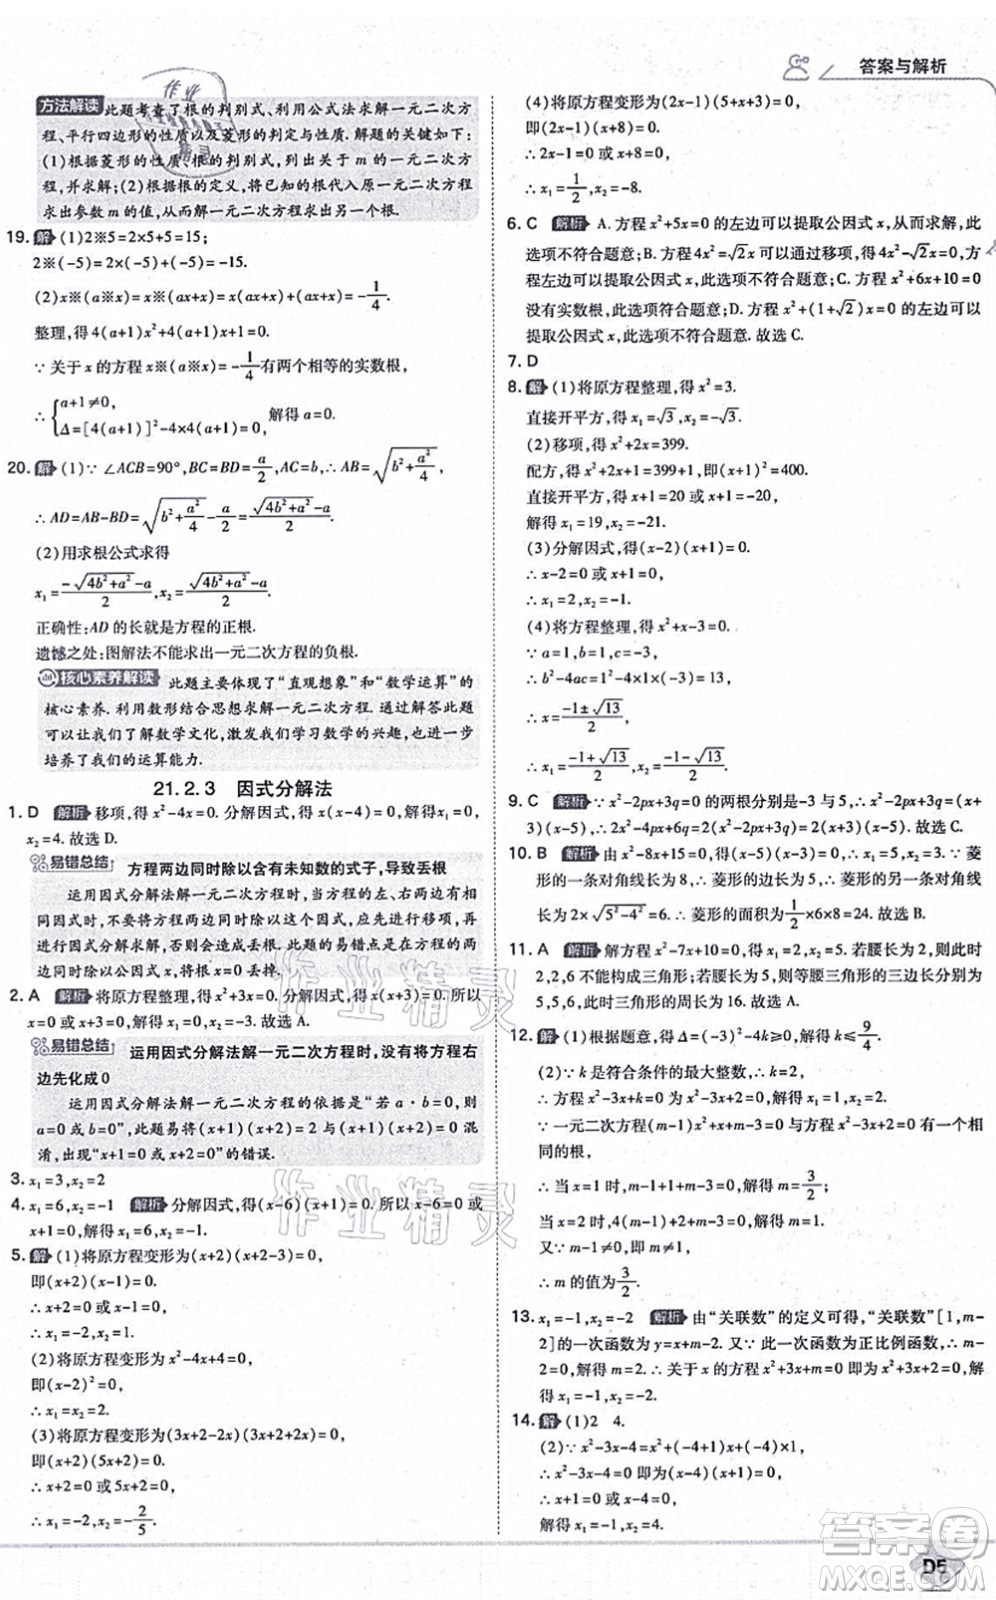 答案与解析
方法解读 此题考查了根的判别式、利用公式法求解一元二次方
程、平行四边形的性质以及菱形的判定与性质. 解题的关键如下:
(1)根据菱形的性质、根的判别式,列出关于 m 的一元二次方
程,并求解;(2)根据根的定义,将已知的根代入原一元二次方程
求出参数 m 的值,从而解一元二次方程求出另一个根.
19. 解 (1)2※5=2×5+5=15;
2※(-5)=2×(-5)+(-5)=-15.
(2)x※(a※x)=x※(ax+x)=x(ax+x)+(ax+x)=-1/4.
整理,得 4(a+1)x²+4(a+1)x+1=0.
∵关于 x 的方程 x※(a※x)=-1/4有两个相等的实数根,
∴{a+1≠0, Δ=[4(a+1)]²-4×4(a+1)=0, 解得 a=0.
20. 解 (1)∵∠ACB=90°,BC=BD=a/2,AC=b,∴AB=√(b²+a²/4),
∴AD=AB-BD=√(b²+a²/4)-a/2=(√(4b²+a²)-a)/2.
(2)用求根公式求得
x₁=(-√(4b²+a²)-a)/2,x₂=(√(4b²+a²)-a)/2.
正确性:AD 的长就是方程的正根.
遗憾之处:图解法不能求出一元二次方程的负根.
核心素养解读 此题主要体现了“直观想象”和“数学运算”的
核心素养. 利用数形结合思想求解一元二次方程. 通过解答此题
可以让我们了解数学文化,激发我们学习数学的兴趣,也进一步
培养了我们的运算能力.
21.2.3 因式分解法
1. D 解析 移项,得 x²-4x=0. 分解因式,得 x(x-4)=0. 解得x₁=0,
x₂=4. 故选 D.
易错总结 方程两边同时除以含有未知数的式子,导致丢根
运用因式分解法解一元二次方程时,方程的左、右两边有相
同因式时,不要将方程两边同时除以这个因式,应先进行移项,再
进行因式分解求解. 此题的易错点是在没有移项的方程的两
边同时除以公因式 x,将根 x=0 丢掉.
2. A 解析 将原方程整理,得 x²+3x=0. 分解因式,得 x(x+3)=0. 所以
x=0 或 x+3=0,解得 x₁=0,x₂=-3. 故选 A.
易错总结 运用因式分解法解一元二次方程时,没有将方程右
边先化成 0
运用因式分解法解一元二次方程的依据是“若 a·b=0,则
a=0 或 b=0”,此题易将(x+1)(x+2)=2 与(x+1)(x+2)=0 混
淆,出现“x+1=2 或 x+2=2”的错误.
3. x₁=3,x₂=2
4. x₁=6,x₂=-1 解析 分解因式,得(x-6)(x+1)=0. 所以 x-6=0 或
x+1=0,解得 x₁=6,x₂=-1.
5. 解 (1)将原方程变形为(x+2)(x+2-3)=0,
即(x+2)(x-1)=0.
∴x+2=0 或 x-1=0.
∴x₁=-2,x₂=1.
(2)将原方程变形为 x²-4x+4=0,
即(x-2)²=0.
∴x₁=x₂=2.
(3)将原方程变形为(3x+2-2x)(3x+2+2x)=0,
即(x+2)(5x+2)=0.
∴x+2=0 或 5x+2=0.
∴x₁=-2,x₂=-2/5.
(4)将原方程变形为(2x-1)(5+x+3)=0,
即(2x-1)(x+8)=0.
∴2x-1=0 或 x+8=0.
∴x₁=1/2,x₂=-8.
6. C 解析 A. 方程 x²+5x=0 的左边可以提取公因式 x,从而求解,此
选项不符合题意;B. 方程 4x²=√2x 可以通过移项,得 4x²-√2x=0,方
程左边可以提取公因式 x,此选项不符合题意;C. 方程 x²+6x+10=0
没有实数根,此选项符合题意;D. 方程 x²+(1+√2)x=0 的左边可以
提取公因式 x,此选项不符合题意. 故选 C.
7. D
8. 解 (1)将原方程整理,得 x²=3.
直接开平方,得 x₁=√3,x₂=-√3.
(2)移项,得 x²+2x=399.
配方,得 x²+2x+1=399+1,即(x+1)²=400.
直接开平方,得 x+1=20 或 x+1=-20,
解得 x₁=19,x₂=-21.
(3)分解因式,得(x-2)(x+1)=0.
∴x-2=0 或 x+1=0.
∴x₁=2,x₂=-1.
(4)将方程整理,得 x²+x-3=0.
∵a=1,b=1,c=-3,
∴b²-4ac=1²-4×1×(-3)=13,
∴x=(-1±√13)/2,
∴x₁=(-1+√13)/2,x₂=(-1-√13)/2.
9. C 解析 ∵x²-2px+3q=0 的两根分别是-3与5,∴x²-2px+3q=(x+
3)(x-5),∴2x²-4px+6q=2(x²-2px+3q)=2(x+3)(x-5). 故选 C.
10. B 解析 由 x²-8x+15=0,得(x-5)(x-3)=0. ∴x₁=5,x₂=3. ∵菱
形的一条对角线长为 8,∴菱形的边长为 5. ∴菱形的另一条对角线
长为 2×√(5²-4²)=6. ∴菱形的面积为1/2×6×8=24. 故选 B.
11. A 解析 解方程 x²-7x+10=0,得 x₁=2,x₂=5. 若腰长为 2,则此时
2,2,5 不能构成三角形;若腰长为 5,则等腰三角形的三边长分别为
5,5,6,此时三角形的周长为 16. 故选 A.
12. 解 (1)根据题意,得 Δ=(-3)²-4k≥0,解得 k≤9/4.
(2)∵k 是符合条件的最大整数,∴k=2.
∴方程 x²-3x+k=0 的根为 x₁=1,x₂=2.
∵一元二次方程(m-1)x²+x+m-3=0 与方程 x²-3x+k=0 有一个
相同的根,
∴当 x=1 时,m-1+1+m-3=0,解得 m=3/2;
当 x=2 时,4(m-1)+2+m-3=0,解得 m=1.
又∵m-1≠0,
∴m 的值为3/2.
13. x₁=-1,x₂=-2 解析 由“关联数”的定义可得,“关联数”[1,m-
2]的一次函数为 y=x+m-2. 又∵此一次函数为正比例函数,∴m-
2=0,解得 m=2. ∴关于 x 的方程 x²+3x+m=0 即为 x²+3x+2=0,
解得 x₁=-1,x₂=-2.
14. 解 (1)2 4.
(2)∵x²-3x-4=0,x²+(-4+1)x+(-4)×1=0,
∴x²-3x-4=0 即为(x-4)(x+1)=0.
∴x+1=0 或 x-4=0.
解得 x₁=-1,x₂=4.
作业精灵
作业精灵
答案圈
MXQE.COM
D5